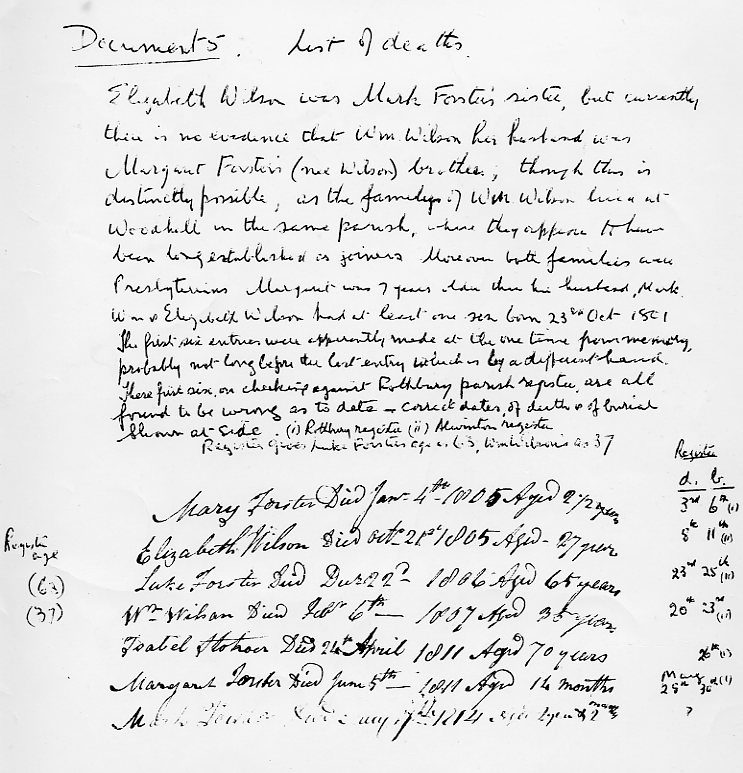 Document 5. List of deaths.
Elizabeth Wilson was Mark Forster's sister, but currently
there is no evidence that Wm Wilson her husband was
Margaret Forster's (nee Wilson) brother, though this is
distinctly possible, as the family of Wm Wilson lived at
Woodhall in the same parish, where they appear to have
been long established as joiners. Moreover both families were
Presbyterians. Margaret was 7 years older than her husband, Mark.
Wm & Elizabeth Wilson had at least one son born 23rd Oct 1801
The first six entries were apparently made at the one time from memory,
probably not long before the last entry which is by a different hand.
These first six, on checking against Rothbury parish register, are all
found to be wrong as to date – correct dates, of death & of burial
shown at side. (i) Rothbury register (ii) Alwinton register
Register gives Luke Forster's age as 63, Wm Wilson's as 37
Register
d. b.
Mary Forster Died Janr 4th 1805 Aged 27 years 3rd 6th (i)
Register
age
Elizabeth Wilson Died octr 21st 1805 Aged - 27 years 8th 11th (ii)
(63) Luke Forster Died Decr 22nd - 1806 Aged 65 years 23rd 25th (ii)
(37) Wm Wilson Died Febr 6th — 1807 Aged 35 years 20th 23rd (ii)
Isabel Died 24th April 1811 Aged 70 years 26th (i)
Margaret Forster Died June 5th — 1811 Aged 14 months May 28th 30th (i)
Mark Forster Died 1814 Aged 2 ?